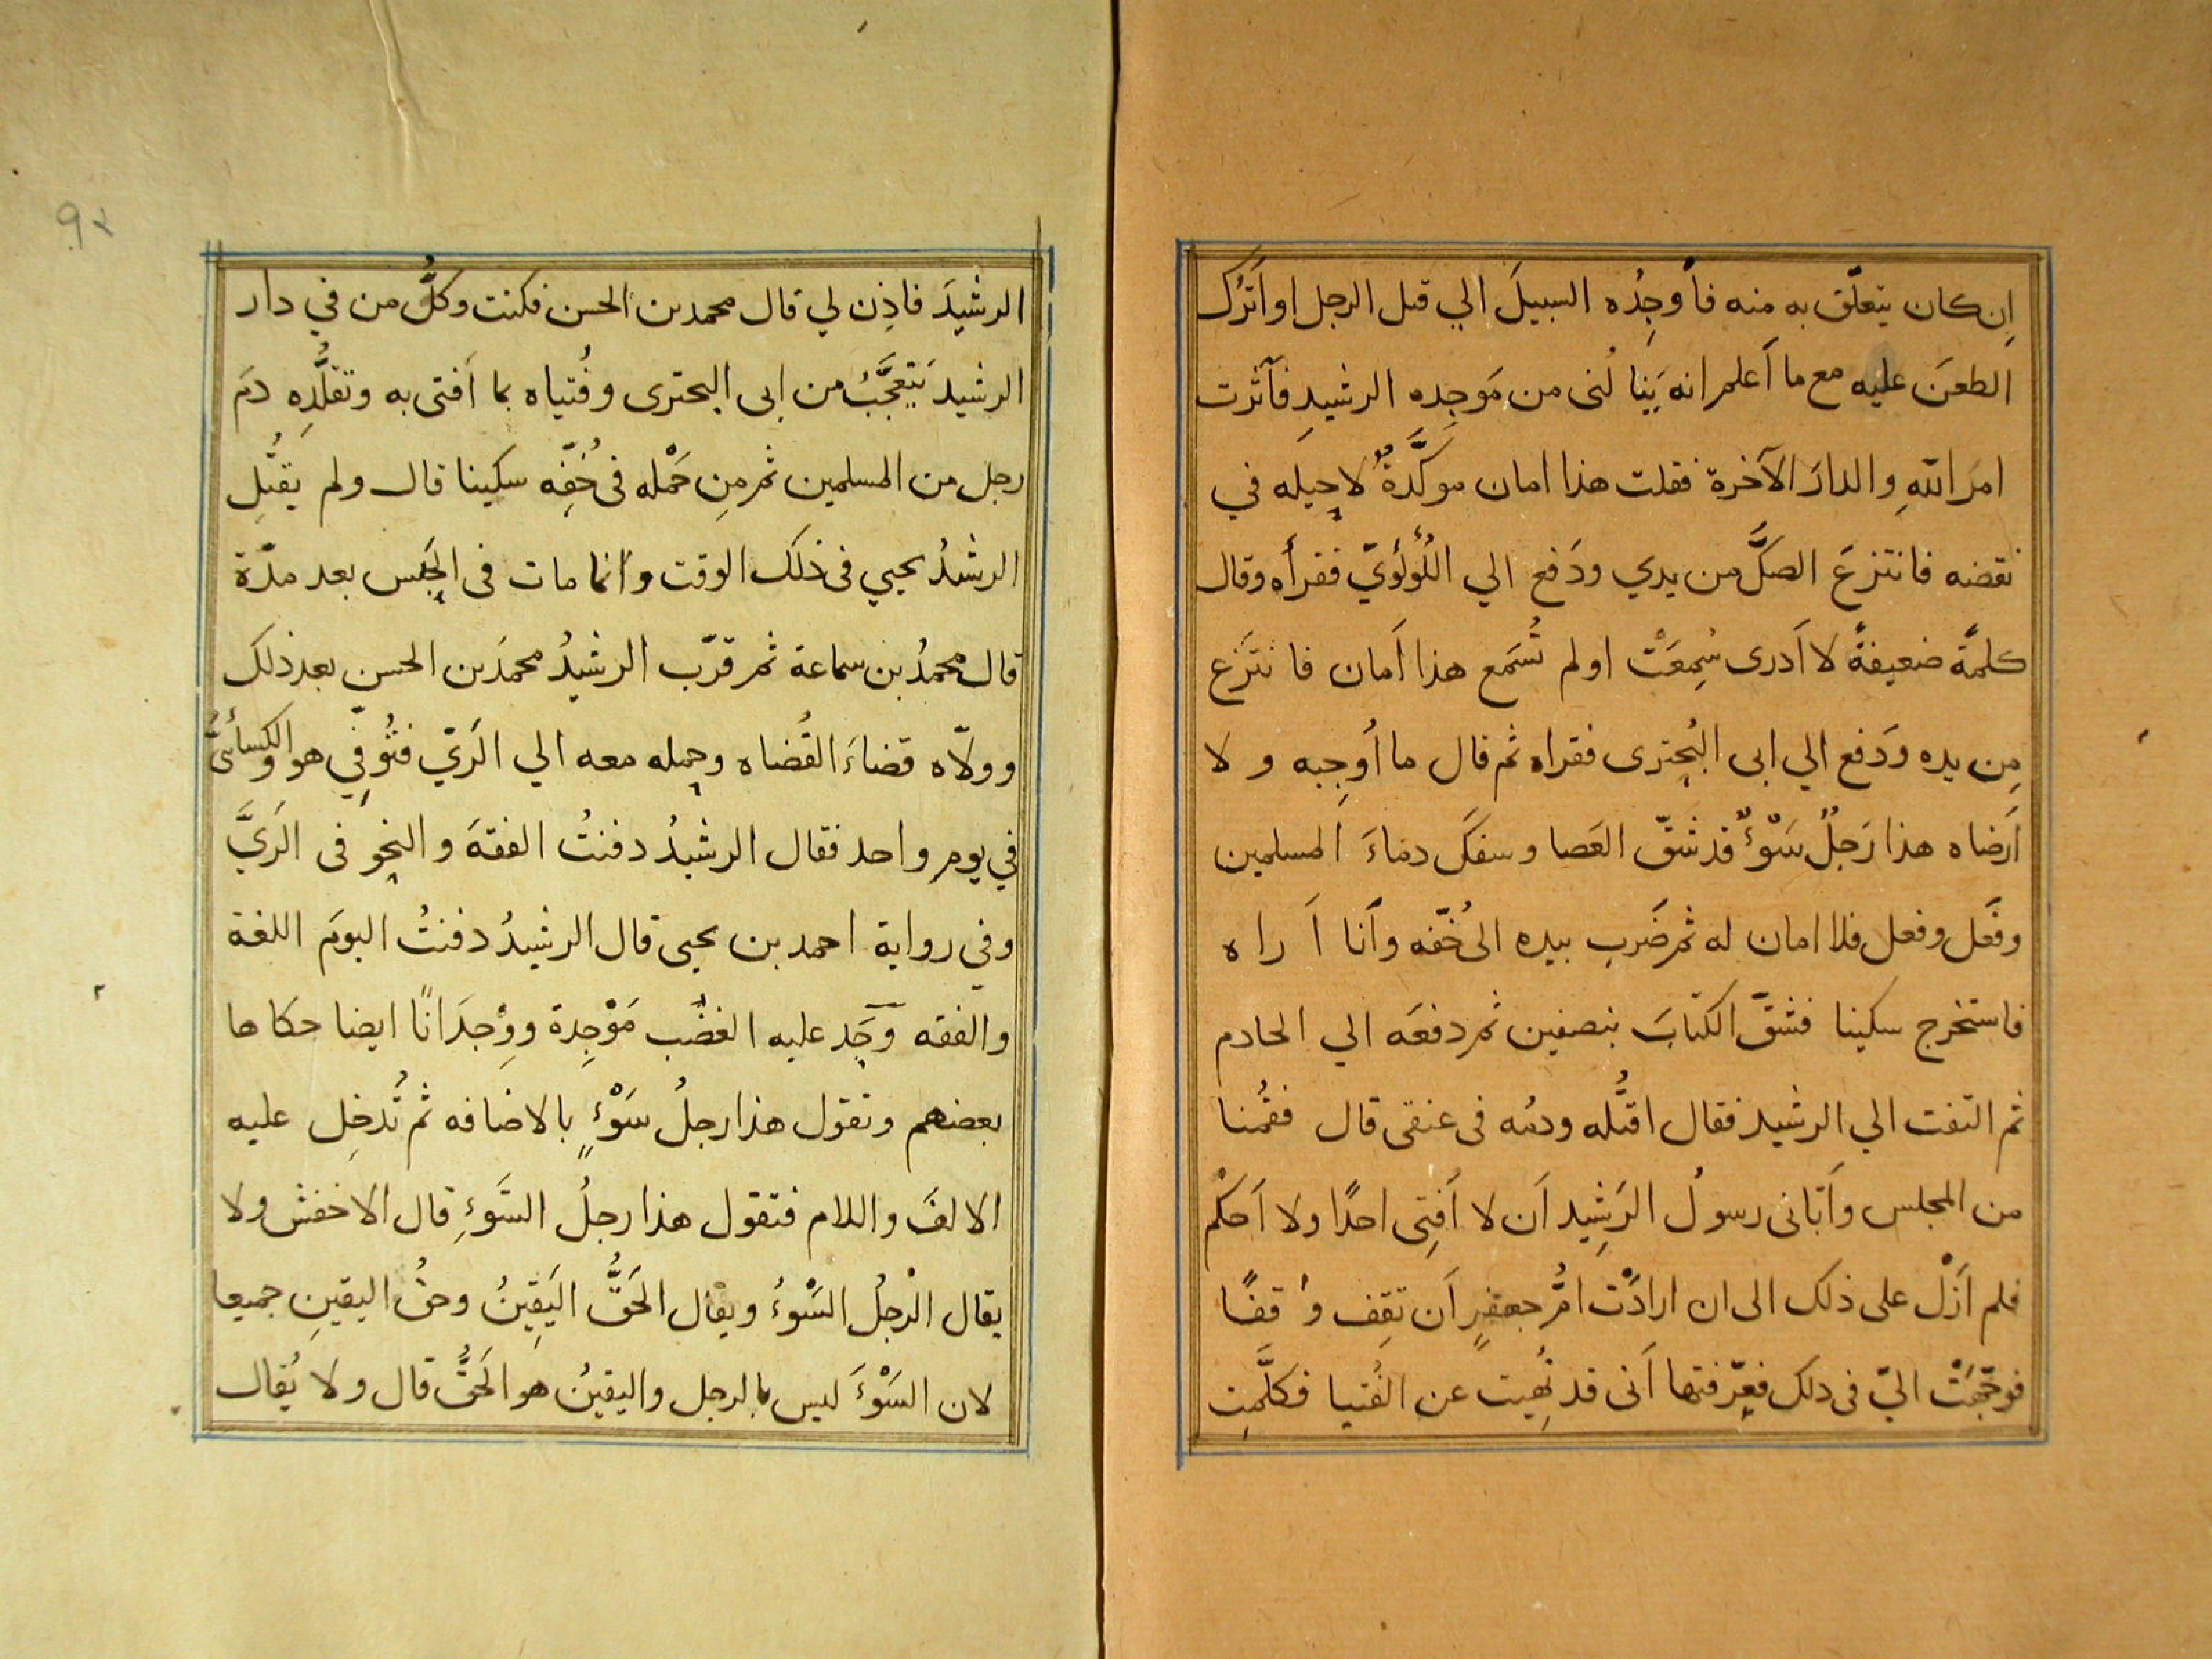 اِن كان يتعلّق به منه فأوجِدُه السبيلَ الي قتل الرجل او اَترُك
الطعنَ عليه مع ما اَعلم انه يَنالُني من مَوجِده الرشيدِ فآثرت
امرَ اللهِ والدارَ الآخرة فقلت هذا امان موكَّدةٌ لا حِيلَه في
نقضه فانتزعَ الصكَّ من يدي ودَفع الي اللُؤلُؤيّ فقرأه وقال
كلمةً ضعيفةً لا اَدرى سُمِعَتْ او لم تُسَمع هذا اَمان فانتَزع
مِن يده ودَفع الي ابى البُحترى فقراه ثم قال ما اُوجِبه ولا
اَرضاه هذا رَجلُ سَوْءٌ قد شقّ العَصا وسفكَ دماءَ المسلمين
وفَعل وفعل فلا امان له ثم ضَرب بيده الى خُفّه واَنا اَراه
فاستخرج سكينا فشقّ الكتابَ بنصفين ثم دفعَه الي الخادم
ثم التفت الي الرشيد فقال اقتُله ودمُه فى عنقى قال فقُمنا
من المجلس واَتانى رسولُ الرَشِيد اَن لا اُفتِى احدًا ولا اَحكمْ
فلم اَزلْ على ذلك الى ان ارادَتْ اُمُّ جعفرٍ اَن تَقِف وَقفًا
فوجّهَتْ اليّ فى ذلك فعرّفتها اَنى قد نُهِيت عن الفُتيا فكلَّمت
٩٢
الرشيدَ فاذِن لي قال محمد بن الحسن فكنت وكلُّ من في دار
الرشيد يَتعجَّبُ من ابى البحترى وفُتياه بما اَفتى به وتقلُّدِه دمَ
رجل من المسلمين ثم مِن حَمْله فى خُفِّه سكينا قال ولم يَقتُلِ
الرشيدُ يحيي فى ذلك الوقت وانما مات فى الحَبس بعد مدّة
قال محمدُ بن سماعة ثم قرّب الرشيدُ محمدَ بن الحسن بعد ذلك
وولاّه قضاءَ القُضاه وحمله معه الي الَريّ فتُوفّي هو والكسائىُّ
في يومٍ واحد فقال الرشيدُ دفنتُ الفقهَ والنحو فى الَريَّ
وفي رواية احمد بن يحيى قال الرشيدُ دفنتُ اليومَ اللغة
والفقه وَجَد عليه الغضب مَوْجِدة ووِجدَانًا ايضا حكاها
بعضهم وتقول هذا رجلُ سَوْءٍ بالاضافه ثم تُدخِل عليه
الالفَ واللام فتقول هذا رجلُ السَّوءِ قال الاخفش ولا
يقال الرجلُ السَوْءُ ويقال الحَقُّ اليَقِينُ وحقُّ اليقينِ جميعا
لان السَوْءَ ليس بالرجل واليقينُ هو الحَقُّ قال ولا يُقال